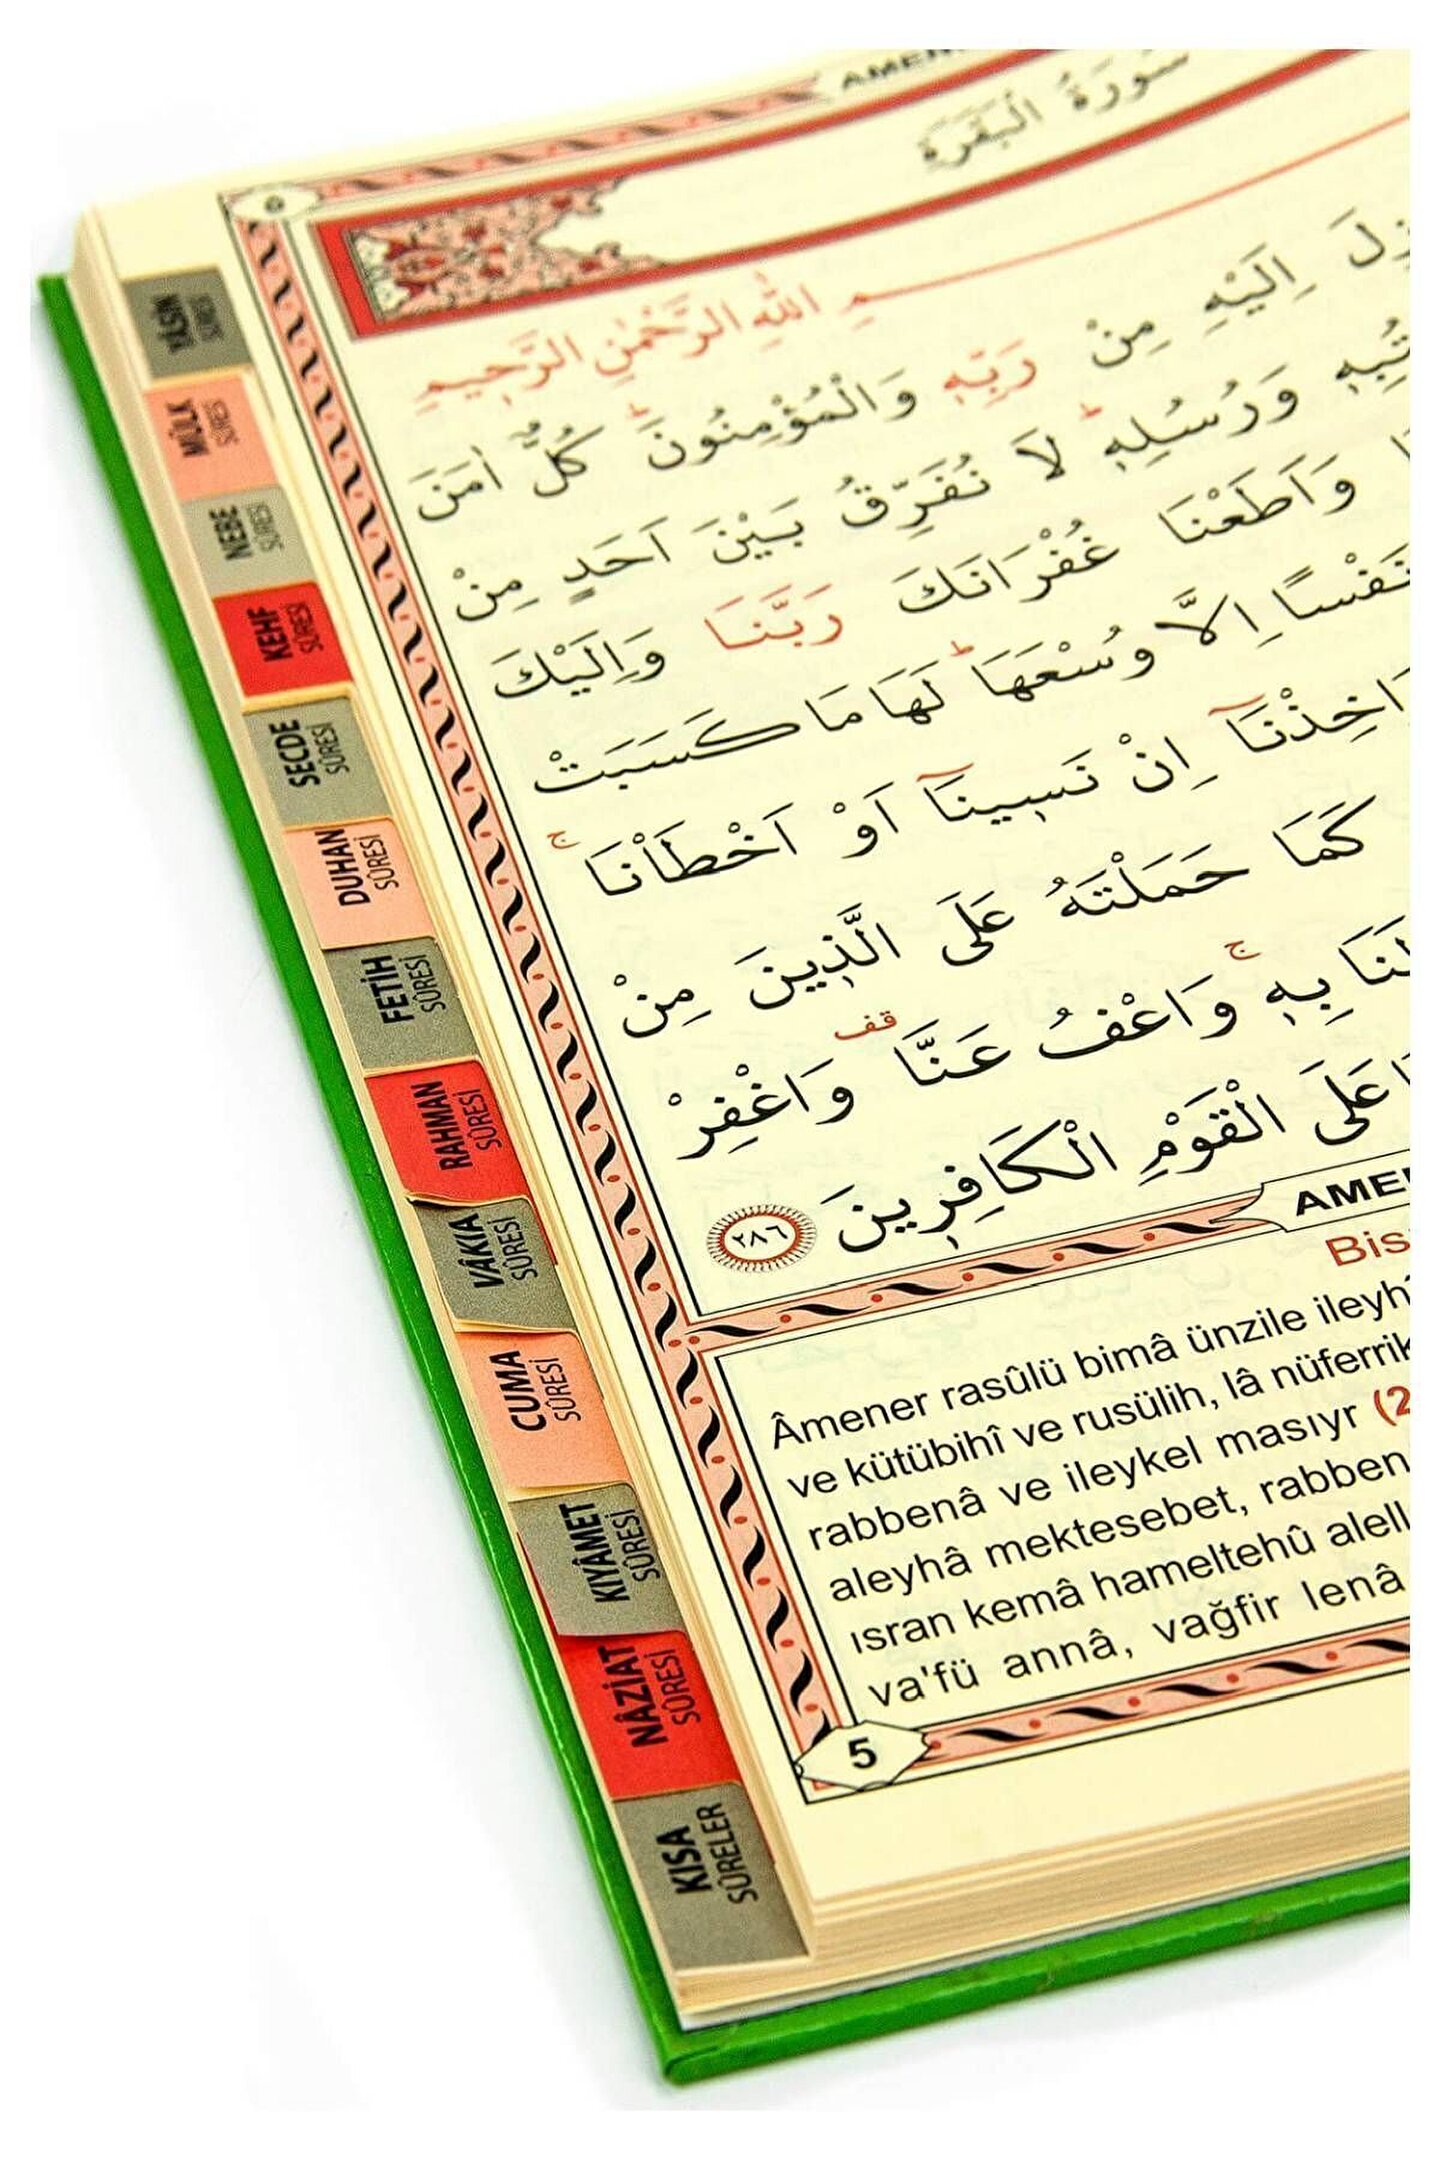 سُورَةُ الْبَقَرَةِ
٥
ـمِ اللّٰهِ الرَّحْمٰنِ الرَّحِيمِ
اِلَيْهِ مِنْ رَبِّهٖ وَالْمُؤْمِنُونَۜ كُلٌّ اٰمَنَ
وَرُسُلِهٖۜ لَا نُفَرِّقُ بَيْنَ اَحَدٍ مِنْ
وَاَطَعْنَا غُفْرَانَكَ رَبَّنَا وَاِلَيْكَ
نَفْسًا اِلَّا وُسْعَهَاۜ لَهَا مَا كَسَبَتْ
اِنْ نَسٖينَٓا اَوْ اَخْطَاْنَاۚ
كَمَا حَمَلْتَهُ عَلَى الَّذٖينَ مِنْ
بِهٖۚ وَاعْفُ عَنَّا۠ وَاغْفِرْ
عَلَى الْقَوْمِ الْكَافِرٖينَ ٢٨٦
Âmener rasûlü bimâ ünzile
ve kütübihî ve rusülih, lâ
rabbenâ ve ileykel masıyr
aleyhâ mektesebet,
ısran kemâ hameltehû
va'fü annâ, vağfir lenâ
5
YÂSİN
SÛRESİ
MÜLK
SÛRESİ
NEBE
SÛRESİ
KEHF
SÛRESİ
SECDE
SÛRESİ
DUHAN
SÛRESİ
FETİH
SÛRESİ
RAHMAN
SÛRESİ
VÂKIA
SÛRESİ
CUMA
SÛRESİ
KIYÂMET
SÛRESİ
NÂZİAT
SÛRESİ
KISA
SÛRELER